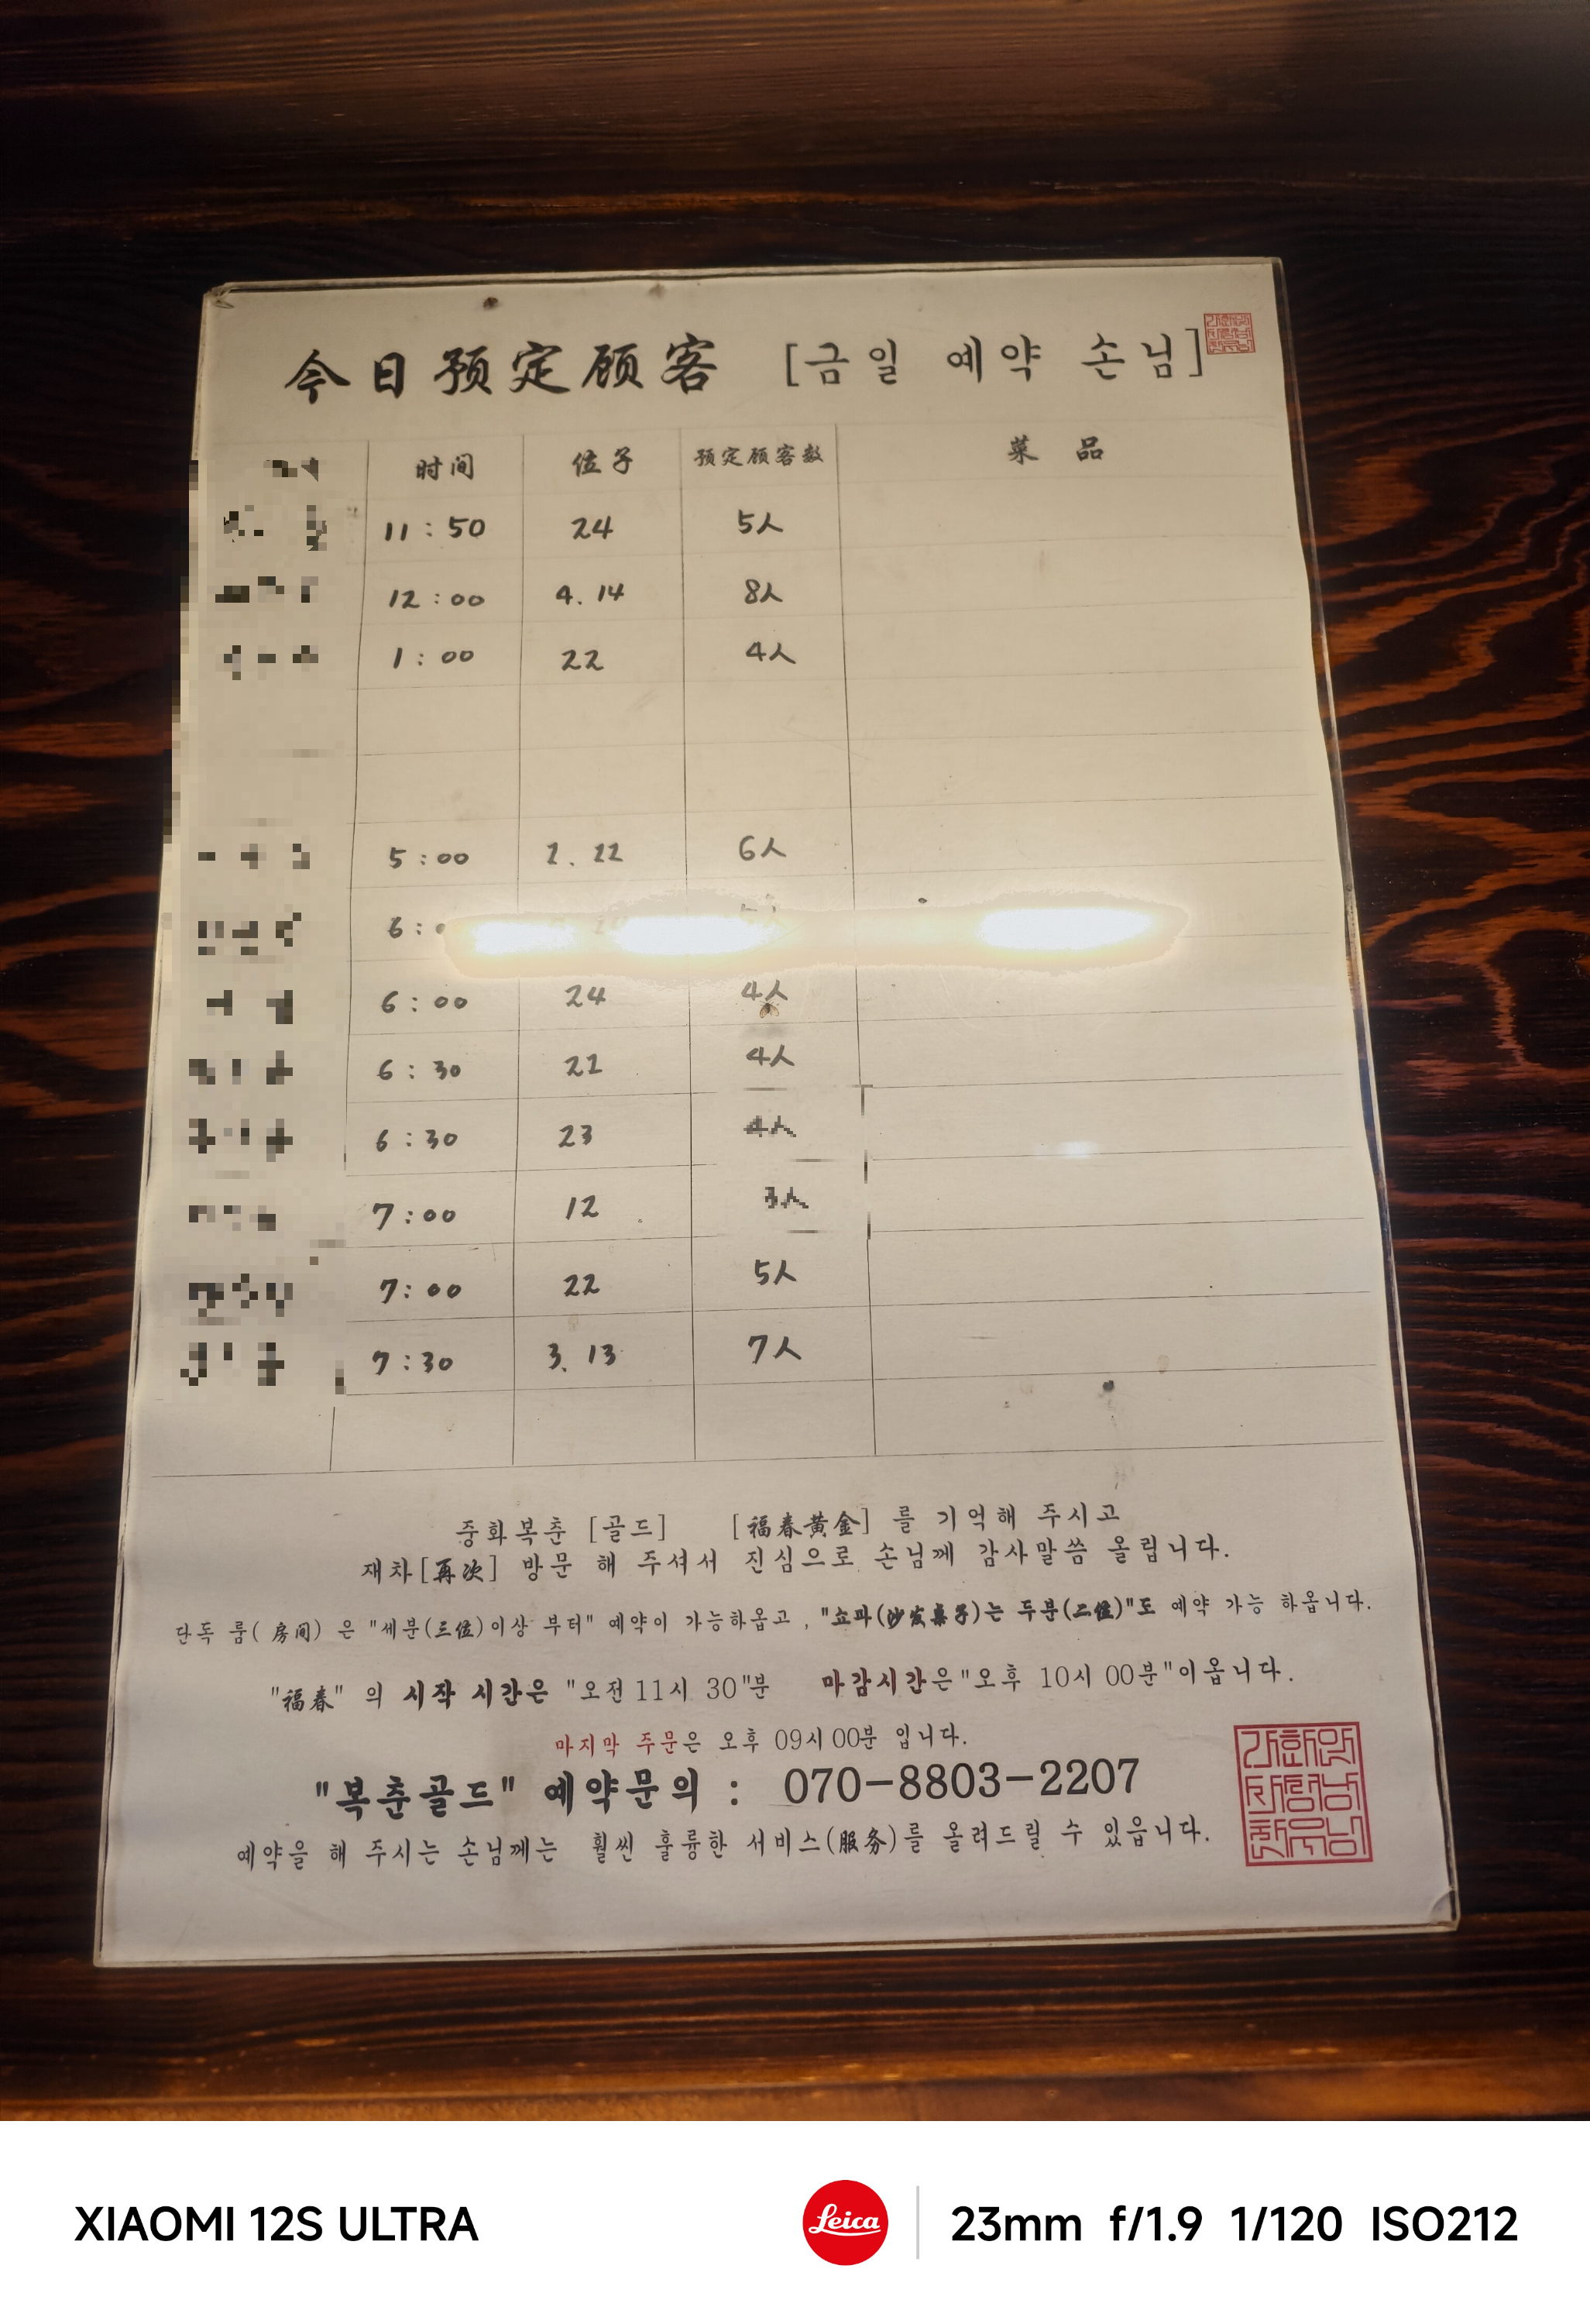 今日预定顾客 [금일 예약 손님]
时间 位子 预定顾客数 菜品
11:50 24 5人
12:00 4.14 8人
1:00 22 4人
5:00 2.22 6人
6:
6:00 24 4人
6:30 21 4人
6:30 23 4人
7:00 12 3人
7:00 22 5人
7:30 3.13 7人
중화복춘 [골드] [福春黄金] 를 기억해 주시고
재차[再次] 방문 해 주셔서 진심으로 손님께 감사말씀 올립니다.
단독 룸( 房间) 은 "세분(三位)이상 부터" 예약이 가능하옵고 , "쇼파(沙发桌子)는 두분(二位)"도 예약 가능 하옵니다.
"福春" 의 시작 시간은 "오전 11시 30"분 마감시간은"오후 10시 00분"이옵니다.
마지막 주문은 오후 09시 00분 입니다.
"복춘골드" 예약문의 : 070-8803-2207
예약을 해 주시는 손님께는 훨씬 훌륭한 서비스(服务)를 올려드릴 수 있읍니다.
XIAOMI 12S ULTRA Leica 23mm f/1.9 1/120 ISO212